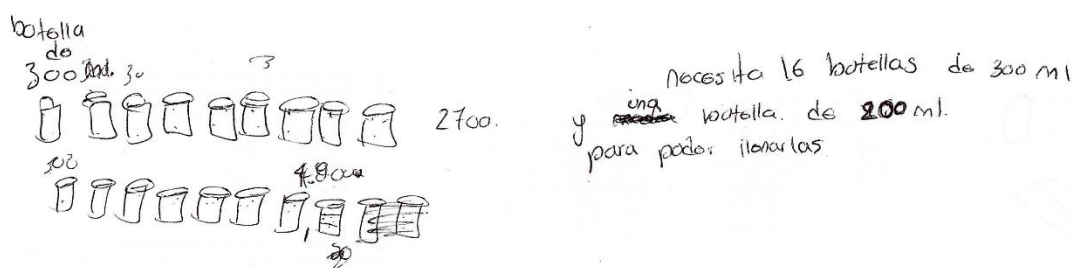 botella
de
300 ml. 30
3
2700.
necesita 16 botellas de 300 ml
y una botella. de 200 ml.
para poder llenarlas